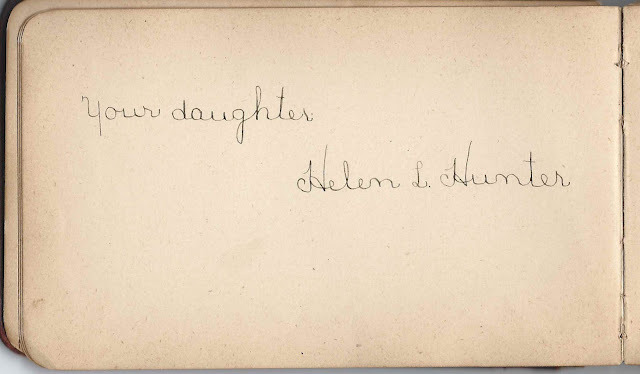 Your daughter
Helen L. Hunter